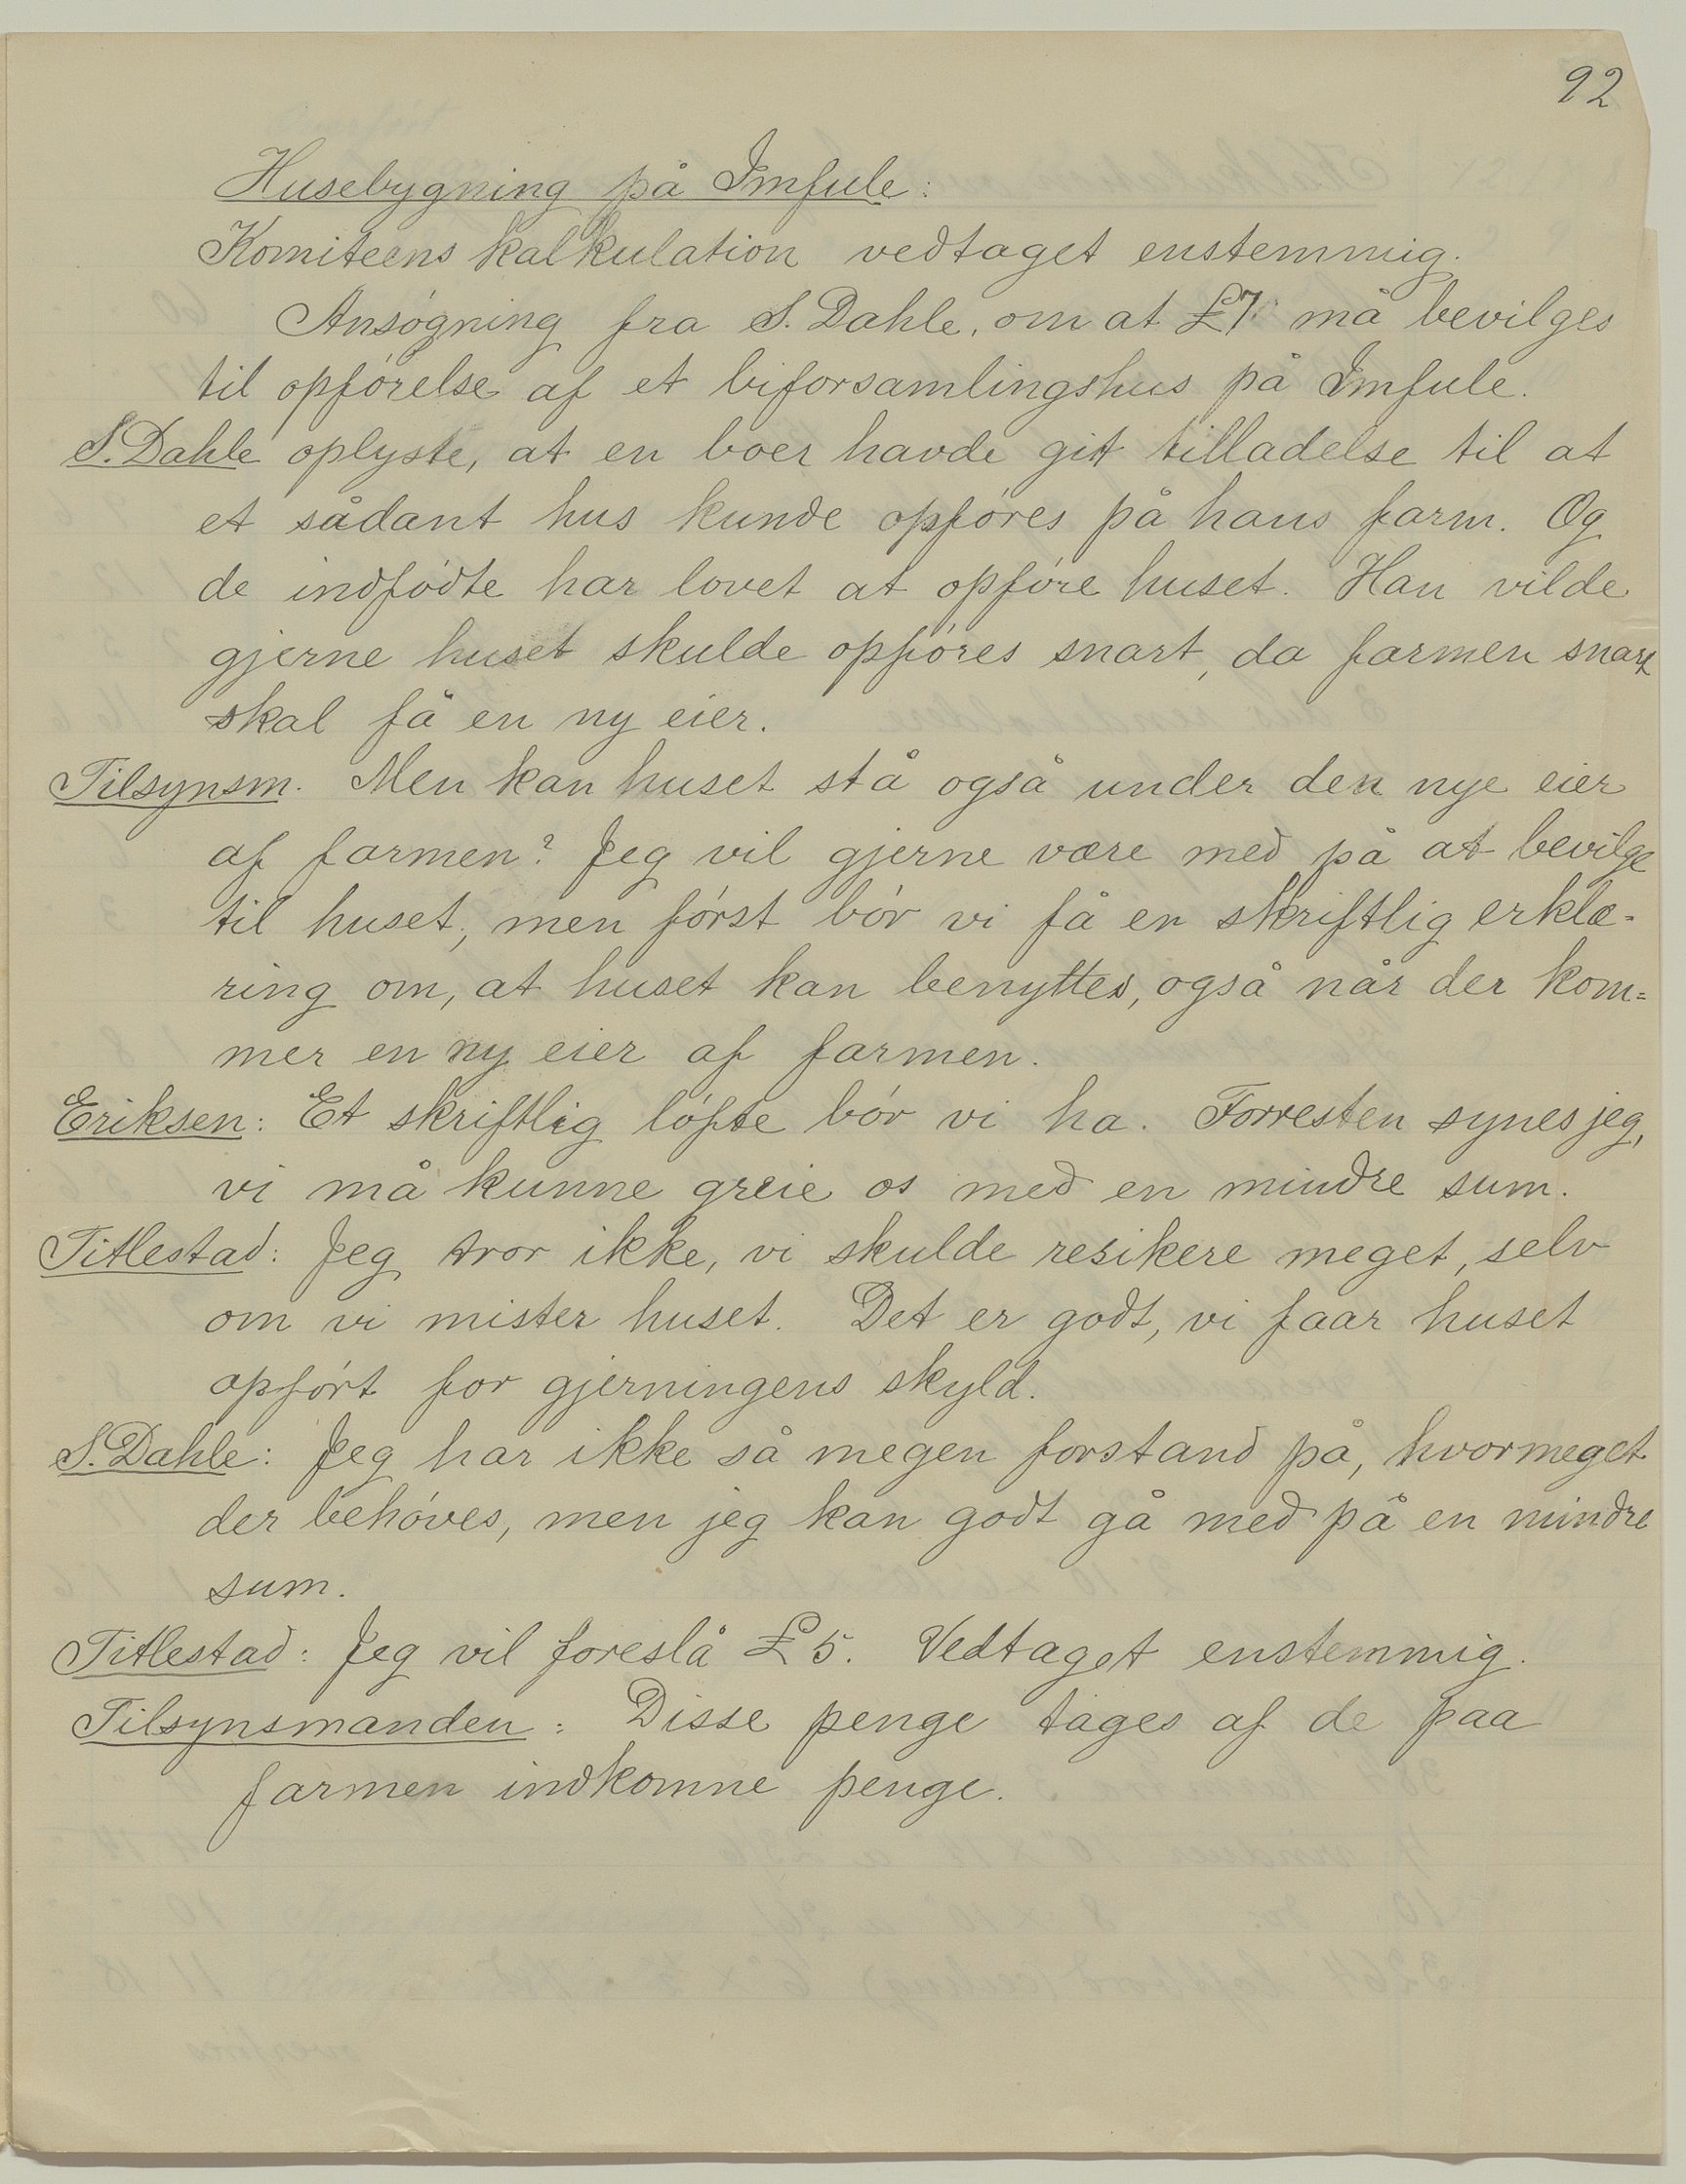 92
Husebygning på Imfule:
Komiteens kalkulation vedtaget enstemmig.
Ansøgning fra S. Dahle, om at £7 må bevilges
til opførelse af et biforsamlingshus på Imfule.
S. Dahle oplyste, at en boer havde git tilladelse til at
et sådant hus kunde opføres på hans farm. Og
de indfødte har lovet at opføre huset. Han vilde
gjerne huset skulde opføres snart, da farmen snart
skal få en ny eier.
Tilsynsm. Men kan huset stå også under den nye eier
af farmen? Jeg vil gjerne være med på at bevilge
til huset, men først bør vi få en skriftlig erklæ-
ring om, at huset kan benyttes, også når der kom=
mer en ny eier af farmen.
Eriksen: Et skriftlig løfte bør vi ha. Forresten synes jeg,
vi må kunne greie os med en mindre sum.
Titlestad: Jeg tror ikke, vi skulde resikere meget, selv
om vi mister huset. Det er godt, vi faar huset
opført for gjerningens skyld.
S. Dahle: Jeg har ikke så megen forstand på, hvormeget
der behøves, men jeg kan godt gå med på en mindre
sum.
Titlestad: Jeg vil foreslå £5. Vedtaget enstemmig.
Tilsynsmanden: Disse penge tages af de paa
farmen indkomne penge.